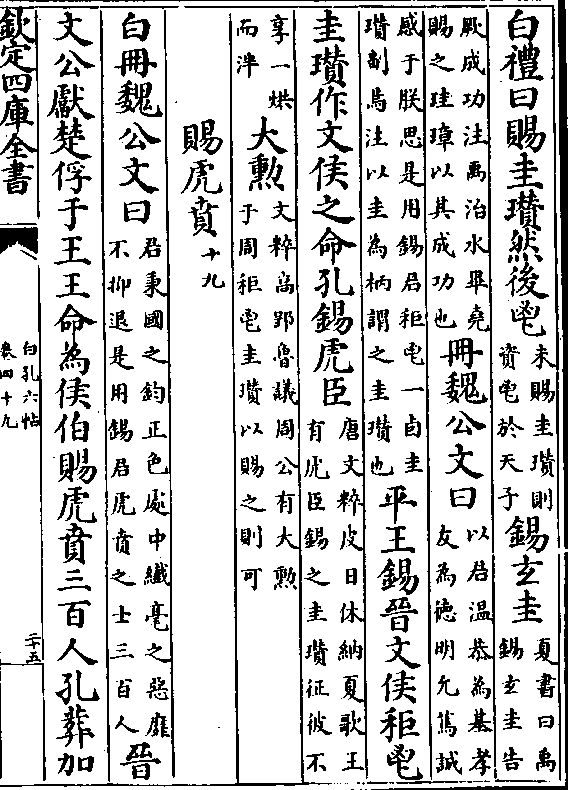 白禮曰賜圭瓚然後鬯未賜圭瓚則資鬯於天子錫玄圭夏書曰禹錫玄圭告
厥成功注禹治水畢堯賜之珪璋以其成功也冊魏公文曰以君溫恭為基孝友為徳明允篤誠
感于朕思是用錫君秬鬯一卣圭瓚副焉注以圭為柄謂之圭瓚也平王錫晉文侯秬鬯
圭瓚作文侯之命孔錫虎臣唐文粹皮日休納夏歌王有虎臣錫之圭瓚征彼不
享一烘而泮大勲文粹高郢魯議周公有大勲于周秬鬯圭瓚以賜之則可
賜虎賁十九
白冊魏公文曰君秉國之鈞正色處中纎毫之惡靡不抑退是用錫君虎賁之士三百人晉
文公獻楚俘于王王命為侯伯賜虎賁三百人孔葬加
欽定四庫全書
白孔六帖
卷四十九
二十五